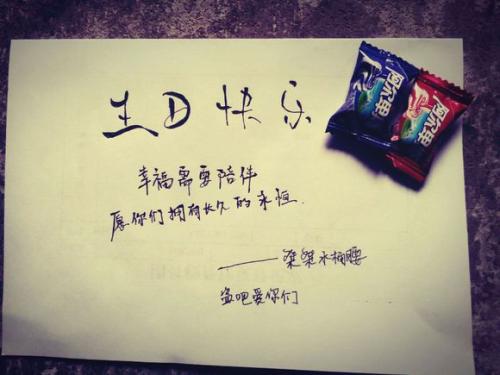 生D快乐
幸福需要陪伴
愿你们拥有长久的永恒.
——桀桀水桶腰
盗吧爱你们
阿尔卑
阿尔卑